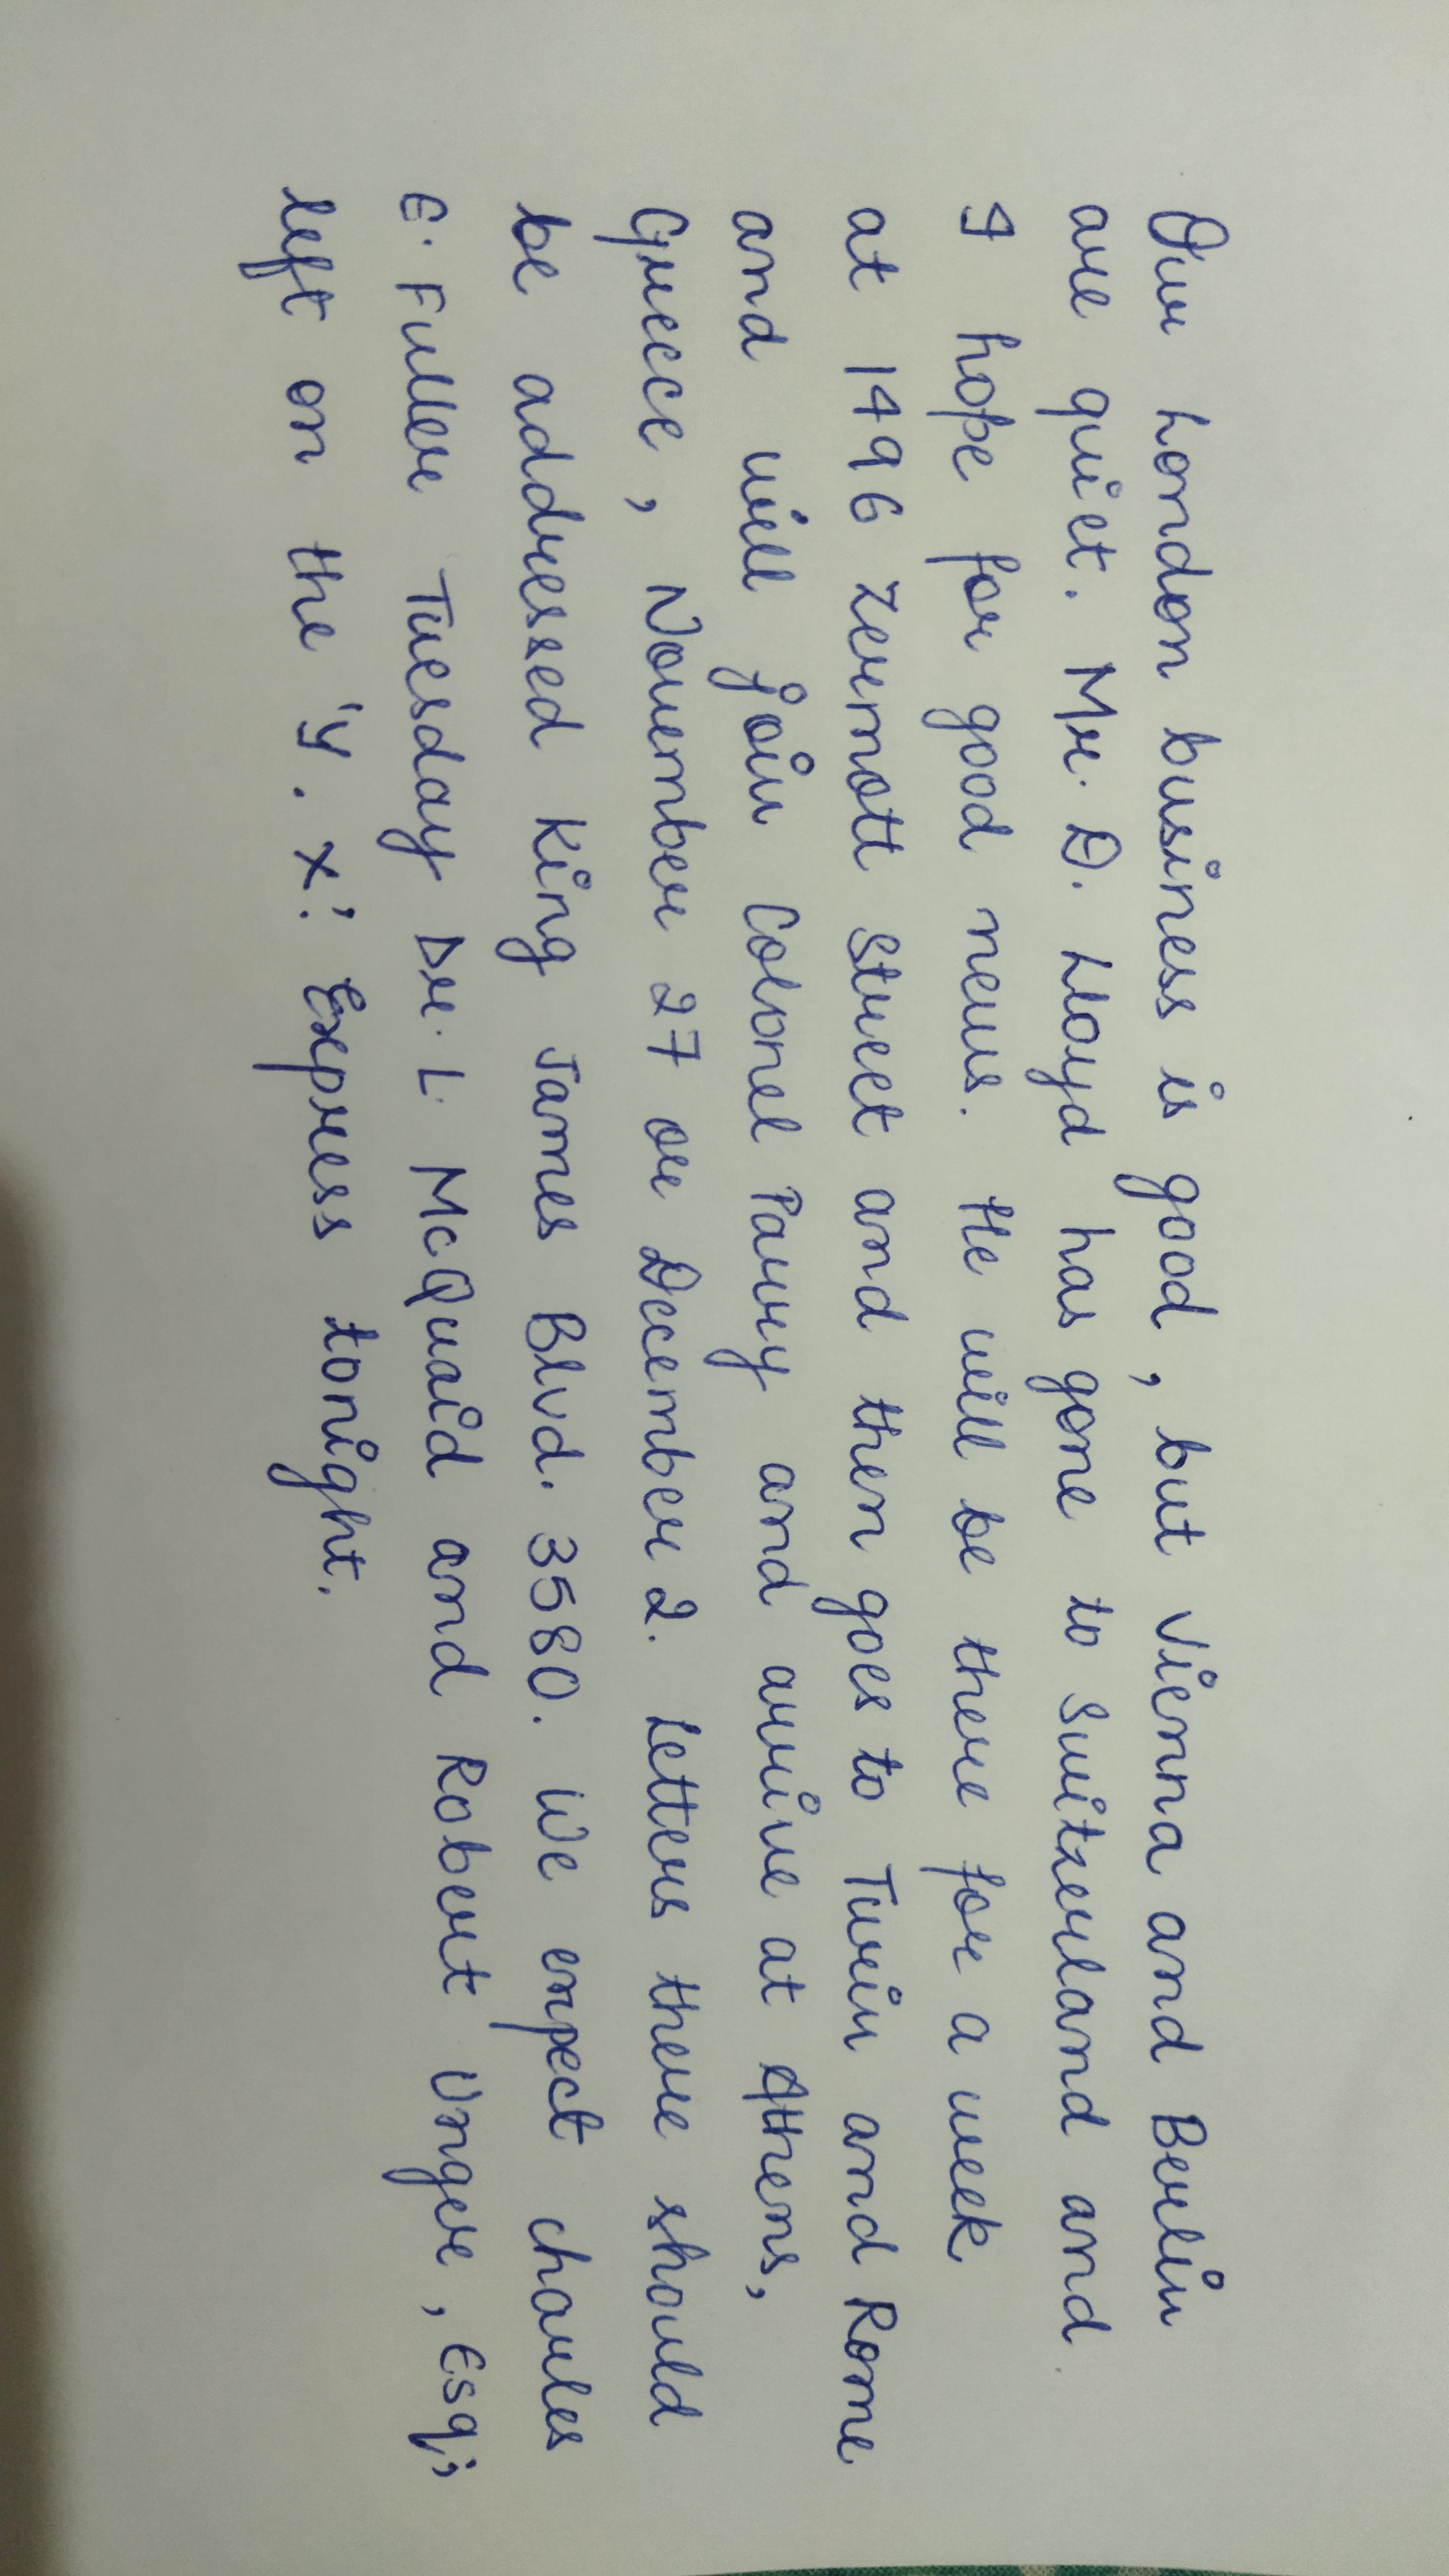 Our London business is good, but Vienna and Berlin
are quiet. Mr. D. Lloyd has gone to Switzerland and
I hope for good news. He will be there for a week
at 1496 Zermott Street and then goes to Turin and Rome
and will join Colonel Parry and arrive at Athens,
Greece, November 27 or December 2. Letters there should
be addressed King James Blvd. 3580. We expect Charles
E. Fuller Tuesday Dr. L. McQuaid and Robert Unger, Esq;
left on the 'Y. X.' Express tonight.